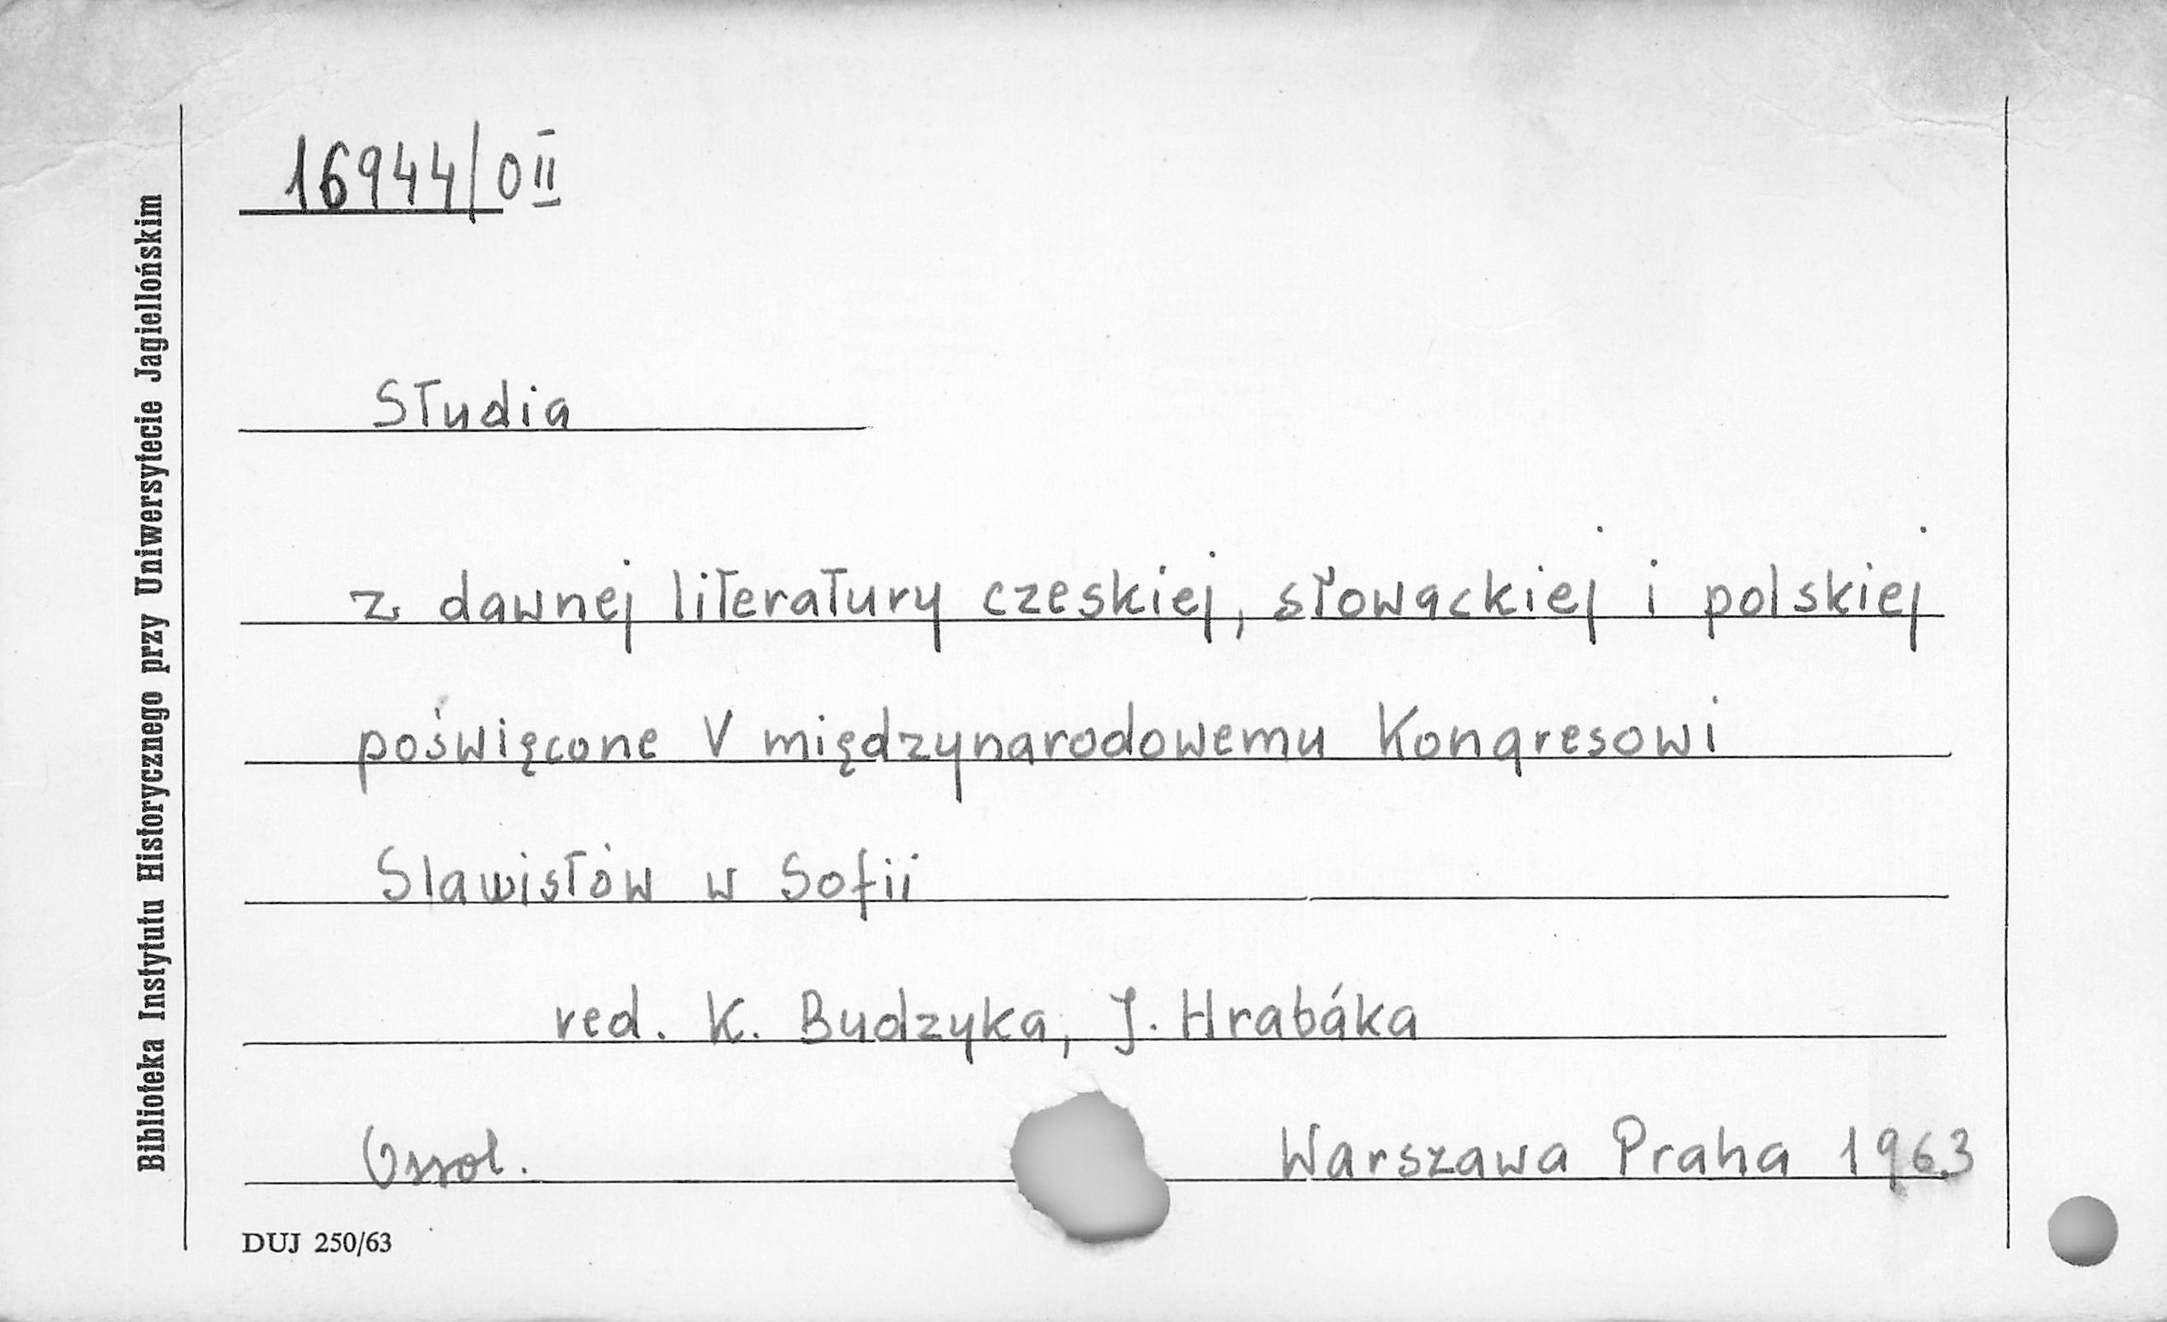 16944/0 II
Studia
z dawnej literatury czeskiej, słowackiej i polskiej
poświęcone V międzynarodowemu Kongresowi
Slawistów w Sofii
red. K. Budzyka, J. Hrabáka
Ossol. Warszawa Praha 1963
DUJ 250/63
Biblioteka Instytutu Historycznego przy Uniwersytecie Jagiellońskim